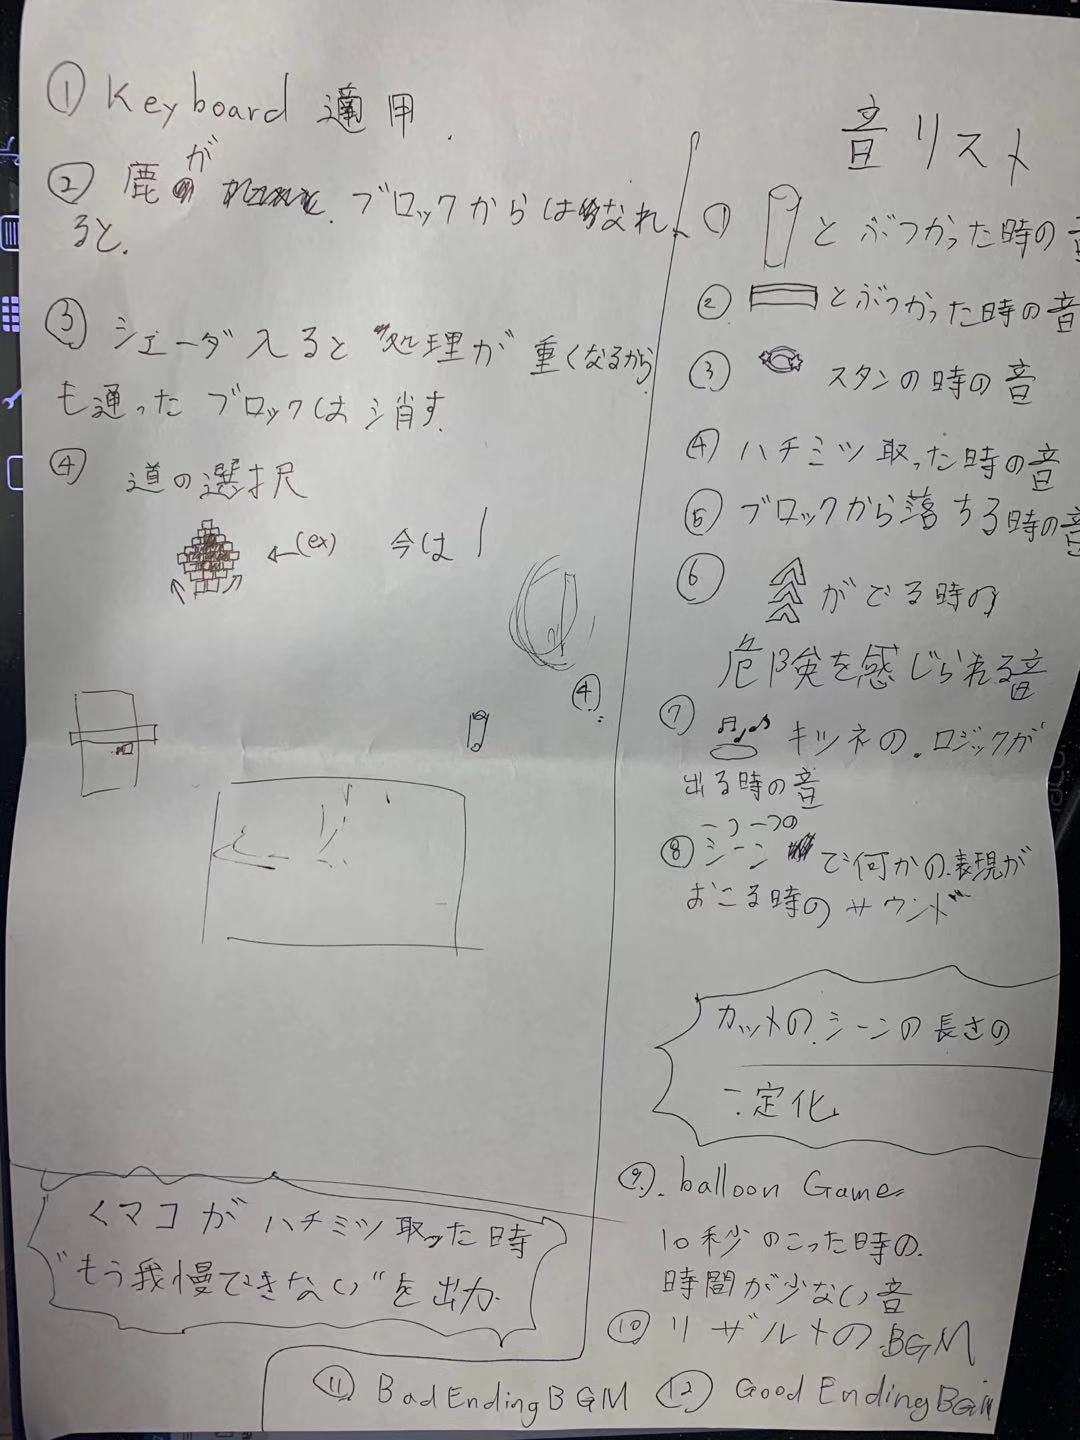 ① Keyboard 適用.
② 鹿が ブロックからはなれ
ると.
③ シェーダ入ると 処理が 重くなるから
も通った ブロックは 消す.
④ 道の選択
←(ex) 今は
④:
くマコが ハチミツ取った時
"もう我慢できない"を出力.
音リスト
① とぶつかった時の音
② とぶつかった時の音
③ スタンの時の音
④ ハチミツ取った時の音
⑤ ブロックから落ちる時の音
⑥ がでる時の
危険を感じられる音
⑦ キツネの.ロジックが
出る時の音
一つ一つの
⑧ シーン で何かの.表現が
おこる時のサウンド
カットの.シーンの長さの
定化
⑨. balloon Game
10秒のこった時の.
時間が少ない音
⑩ リザルトの.BGM
⑪ Bad Ending BGM ⑫ Good Ending BGM